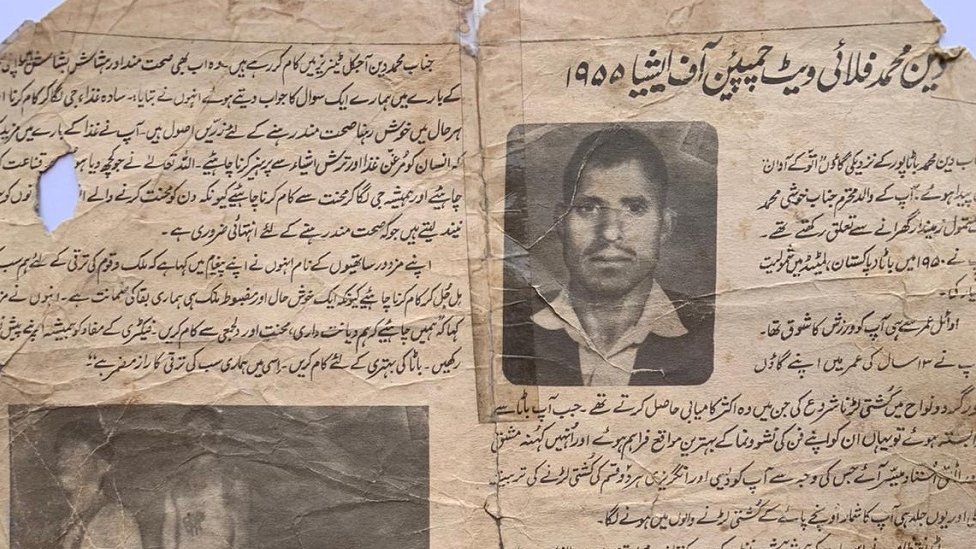 دین محمد فلائی ویٹ چمپیئن آف ایشیا ۱۹۵۵
ب دین محمد باٹاپور کے نزدیکی گاؤں اٹوکے آوان
پیدا ہوئے۔ آپ کے والد محترم جناب خوشی محمد
زمیندار گھرانے سے تعلق رکھتے تھے۔
پ نے ۱۹۵۰ میں باٹا پاکستان، لمیٹڈ میں شمولیت
ار کی۔
اوائل عمر سے ہی آپ کو ورزش کا شوق تھا۔
پ نے ۱۳ سال کی عمر میں اپنے گاؤں
گرد و نواح میں کُشتی لڑنا شروع کی جن میں وہ اکثر کامیابی حاصل کرتے تھے۔ جب آپ باٹا سے
ابستہ ہوئے تو یہاں ان کو اپنے فن کی نشوونما کے بہترین مواقع فراہم ہوئے اور اُنہیں کہنہ مشق
اُستاد میسّر آئے جس کی وجہ سے آپ کو دیسی اور انگریزی ہر دو قسم کی کُشتی لڑنے کی تربیت
اور یوں جلد ہی آپ کا شمار اونچے پائے کے کُشتی لڑنے والوں میں ہونے لگا۔
جناب محمد دین آجکل ٹینریز میں کام کر رہے ہیں۔ وہ اب بھی صحت مند اور ہشاش بشاش
کے بارے میں ہمارے ایک سوال کا جواب دیتے ہوئے انہوں نے بتایا، سادہ غذا، جی لگا کر کام کرنا
ہر حال میں خوش رہنا صحت مند رہنے کے لئے زرّیں اصول ہیں۔ آپ نے غذا کے بارے میں مزید
کہ انسان کو مرغن غذا اور ترش اشیاء سے پرہیز کرنا چاہئیے۔ اللہ تعالےٰ نے جو کچھ دیا ہو قناعت
چاہئیے اور ہمیشہ جی لگا کر محنت سے کام کرنا چاہئیے کیونکہ دن کو محنت کرنے والے نوں کو
نیند لیتے ہیں جو کہ صحت مند رہنے کے لئے انتہائی ضروری ہے۔
اپنے مزدور ساتھیوں کے نام انہوں نے اپنے پیغام میں کہا ہے کہ ملک و قوم کی ترقی کے لئے ہم سب
مل جُل کر کام کرنا چاہئیے کیونکہ ایک خوش حال اور مضبوط ملک ہی ہماری بقا کی ضمانت ہے۔ انہوں نے مز
کہا کہ ہمیں چاہئیے کہ ہم دیانت داری، محنت اور دلجمعی سے کام کریں۔ فیکٹری کے مفاد کو ہمیشہ اپنے پیش نظ
رکھیں۔ باٹا کی بہتری کے لئے کام کریں۔ اسی میں ہماری سب کی ترقی کا راز مضمر ہے"